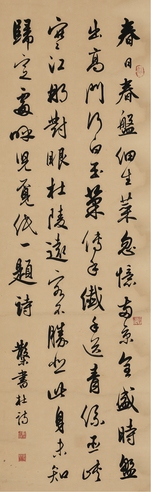 春日春盤細生菜忽憶兩京全盛時盤
出高門行白玉菜傳纖手送青絲巫峽
寒江那對眼杜陵遠客不勝悲此身未知
歸定處呼兒覓紙一題詩
書杜詩